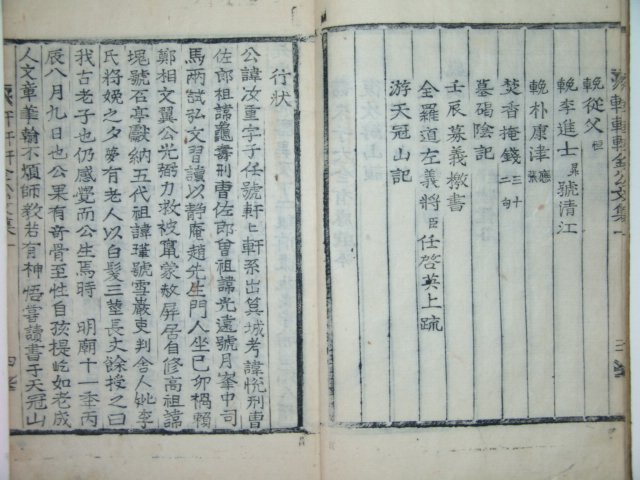 輓從父恒
輓李進士昇號清江
輓朴康津
焚香掩錢三十二句
墓碣陰記
壬辰募義檄書
全羅道左義將臣任啓英上疏
游天冠山記
行狀
公諱汝重字子任號軒〻軒系出箕城考諱悅刑曹
佐郎祖諱龜壽刑曹佐郎曾祖諱光遠號月峯中司
馬兩試弘文習讀以靜庵趙先生門人坐己卯禍賴
鄭相文翼公光弼力救被竄蒙赦屏居自修高祖諱
琨號石亭獻納五代祖諱瑾號雪巖吏判舍人妣李
氏將娩之夕夢有老人以白髮三莖長丈餘授之曰
我古老子也仍感覺而公生焉時 明廟十一季丙
辰八月九日也公果有奇骨至性自孩提屹如老成
人文章華翰不煩師敎若有神悟嘗讀書于天冠山